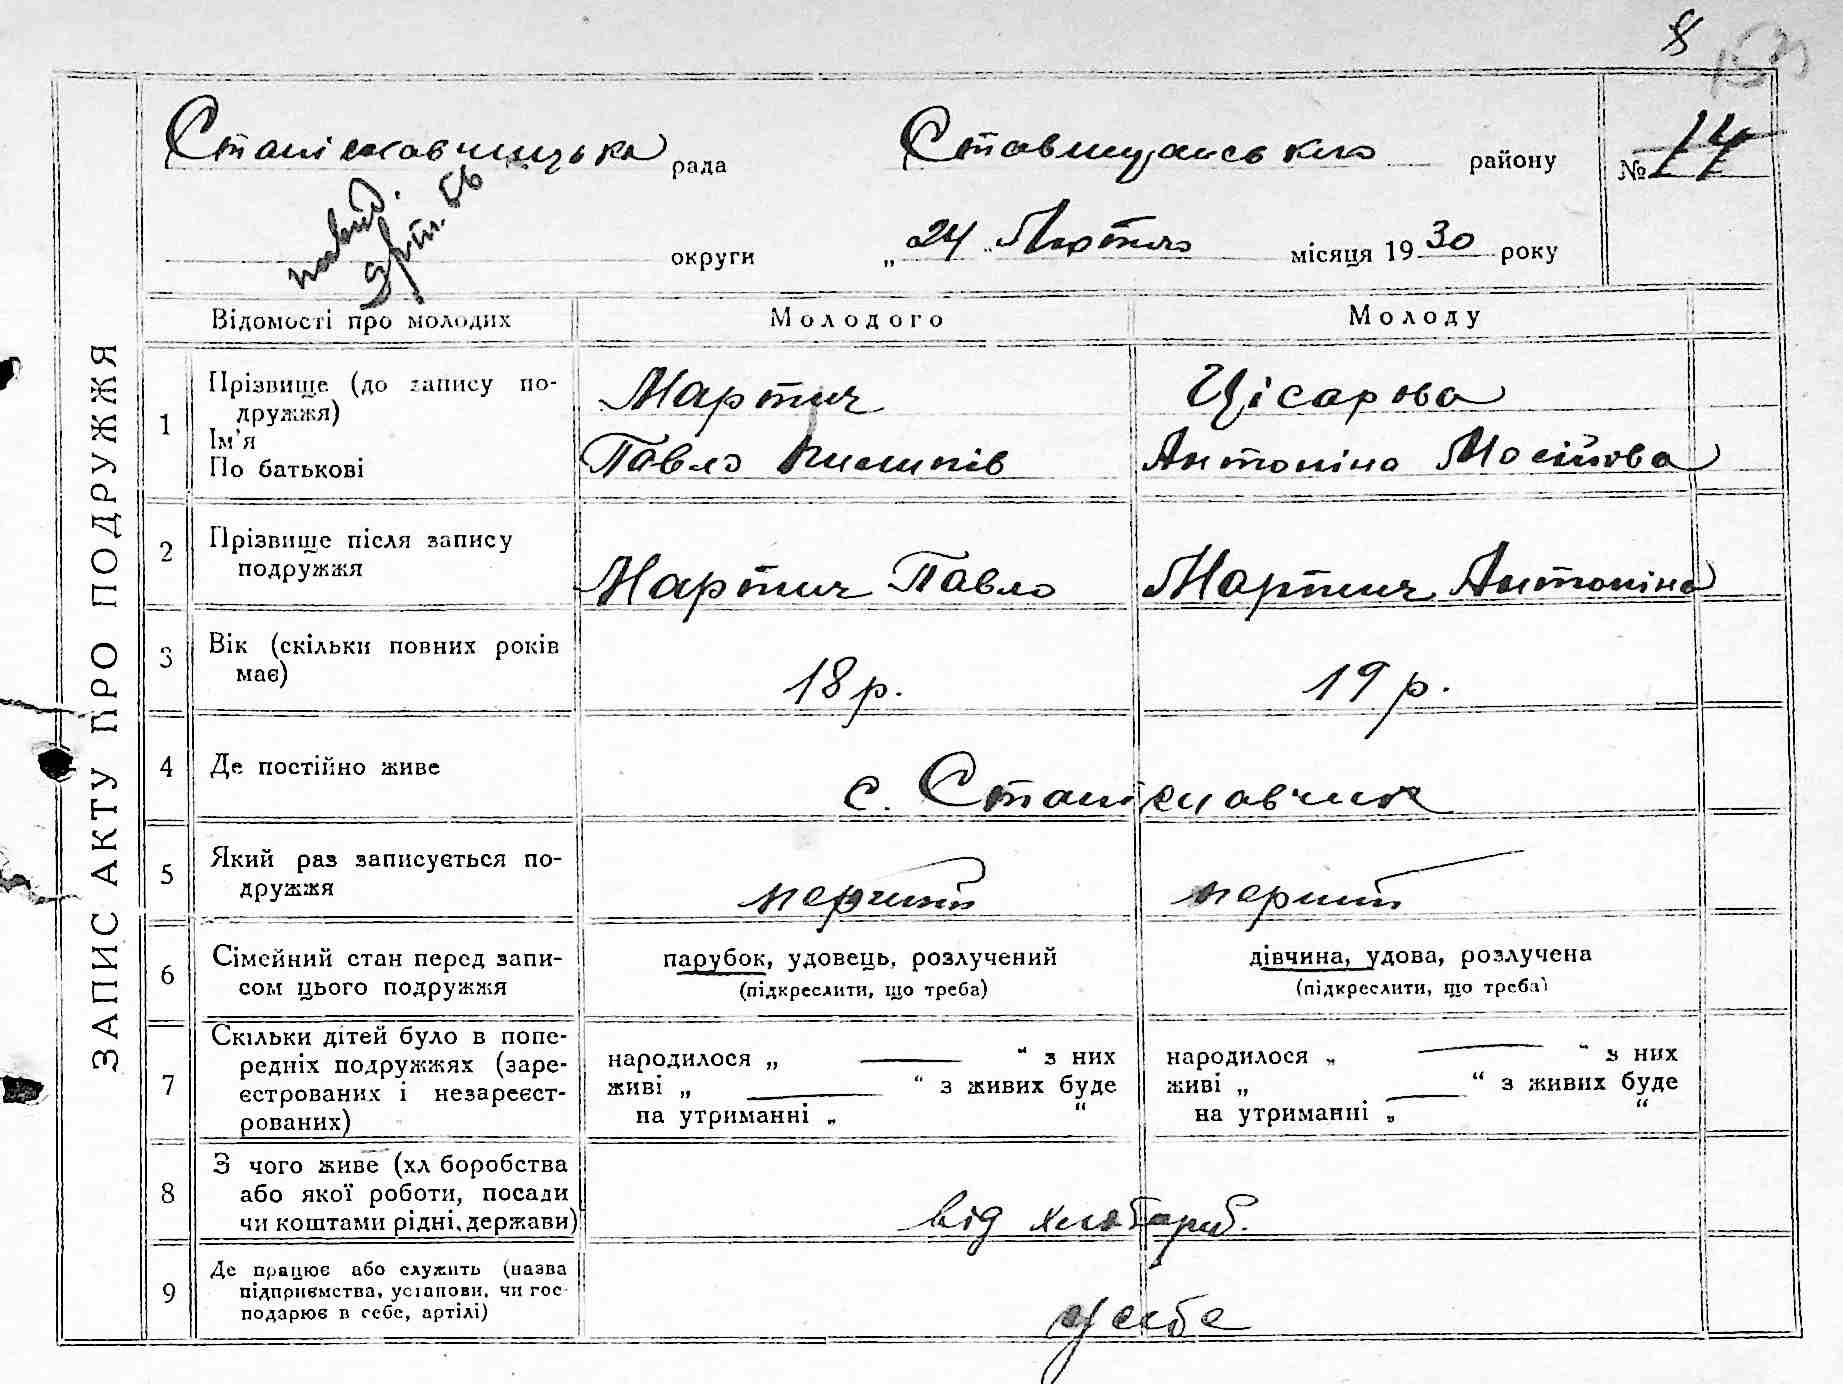 8
Станіславчицька рада Ставищанського району № 14
округи „24" Лютого місяця 1930 року
Відомості про молодих Молодого Молоду
ЗАПИС АКТУ ПРО ПОДРУЖЖЯ
1 Прізвище (до запису по-
дружжя)
Ім'я
По батькові
Мартич
Павло Пилипів
Цісарова
Антоніна Мосійова
2 Прізвище після запису
подружжя
Мартич Павло Мартич Антоніна
3 Вік (скільки повних років
має)
18 р. 19 р.
4 Де постійно живе
с. Станіславчик
5 Який раз записується по-
дружжя
перший перший
6 Сімейний стан перед запи-
сом цього подружжя
парубок, удовець, розлучений
(підкреслити, що треба)
дівчина, удова, розлучена
(підкреслити, що треба)
7 Скільки дітей було в попе-
редніх подружжях (заре-
єстрованих і незареєст-
рованих)
народилося „ — " з них
живі „ — " з живих буде
на утриманні „ "
народилося „ — " з них
живі „ — " з живих буде
на утриманні „ — "
8 З чого живе (хл боробства
або якої роботи, посади
чи коштами рідні, держави)
від хлібороб.
9 Де працює або служить (назва
підприємства, установи, чи гос-
подарює в себе, артілі)
у себе